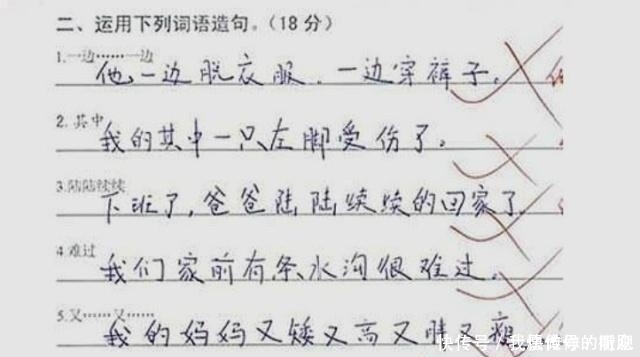 二、运用下列词语造句。(18分)
1.一边……一边
他一边脱衣服，一边穿裤子。
2.其中
我的其中一只左脚受伤了。
3.陆陆续续
下班了，爸爸陆陆续续的回家了
4.难过
我们家前有条水沟很难过。
5.又……又……
我的妈妈又矮又高又胖又瘦
快传号/我